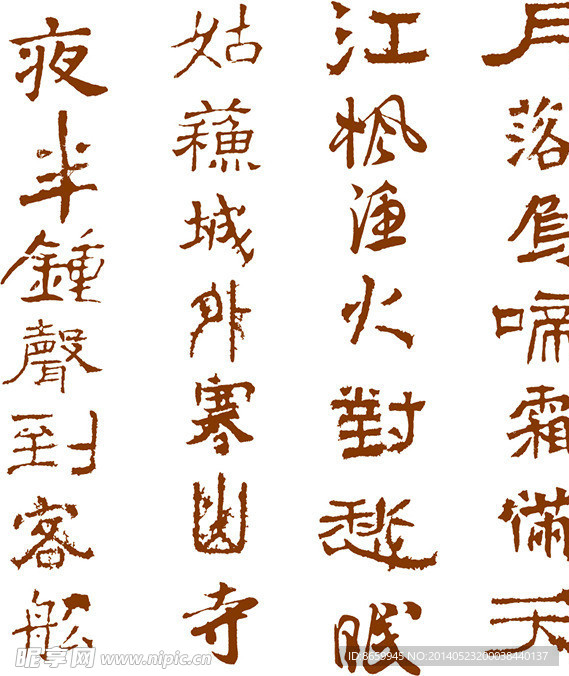 月落烏啼霜滿天
江楓漁火對愁眠
姑蘇城外寒山寺
夜半鍾聲到客船
昵享网 www.nipic.cn
ID:8659945 NO:20140523200038440137